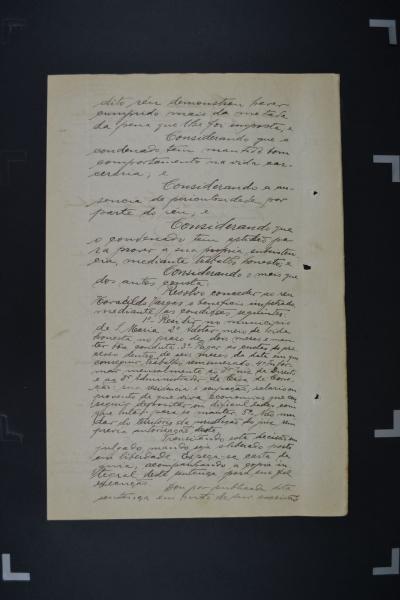 dito réu demonstrou haver
cumprido mais da metade
da pena que lhe foi imposta, e
Considerando que o
condenado tem mantido bom
comportamento na vida car-
cerária, e
Considerando a au-
sencia de periculosidade por
parte do réu, e
Considerando que
o condenado tem aptidão pa-
ra prover a sua propria subsisten-
cia, mediante trabalho honesto, e
Considerando o mais que
dos autos consta:
Resolvo conceder ao réu
Vargas o beneficio impetrado
mediante as condições seguintes:
1ª Residir no municipio
de S. Maria 2ª Adotar meio de vida
honesto no prazo de dois meses e man-
ter boa conduta. 3ª Pagar as custas do pro-
cesso dentro de seis meses da data em que
conseguir trabalho remunerado 4ª Infor-
mar mensalmente ao Dr. Juiz de Direito
e ao Dr. Administrador da Casa de Corre-
ção, sua residencia e ocupação, salario ou
provento de que viva economias que con-
seguir depositar, as dificuldades com
que luta para se manter. 5ª Não mu-
dar do territorio da jurisdição do juiz, sem
previa autorização deste.
Transitando esta decisão em
julgado, mando seja o liberado posto
em liberdade. Expeça-se carta de
guia, acompanhando a copia in-
tegral desta sentença para sua fiel
execução.
Dou por publicada esta
sentença em